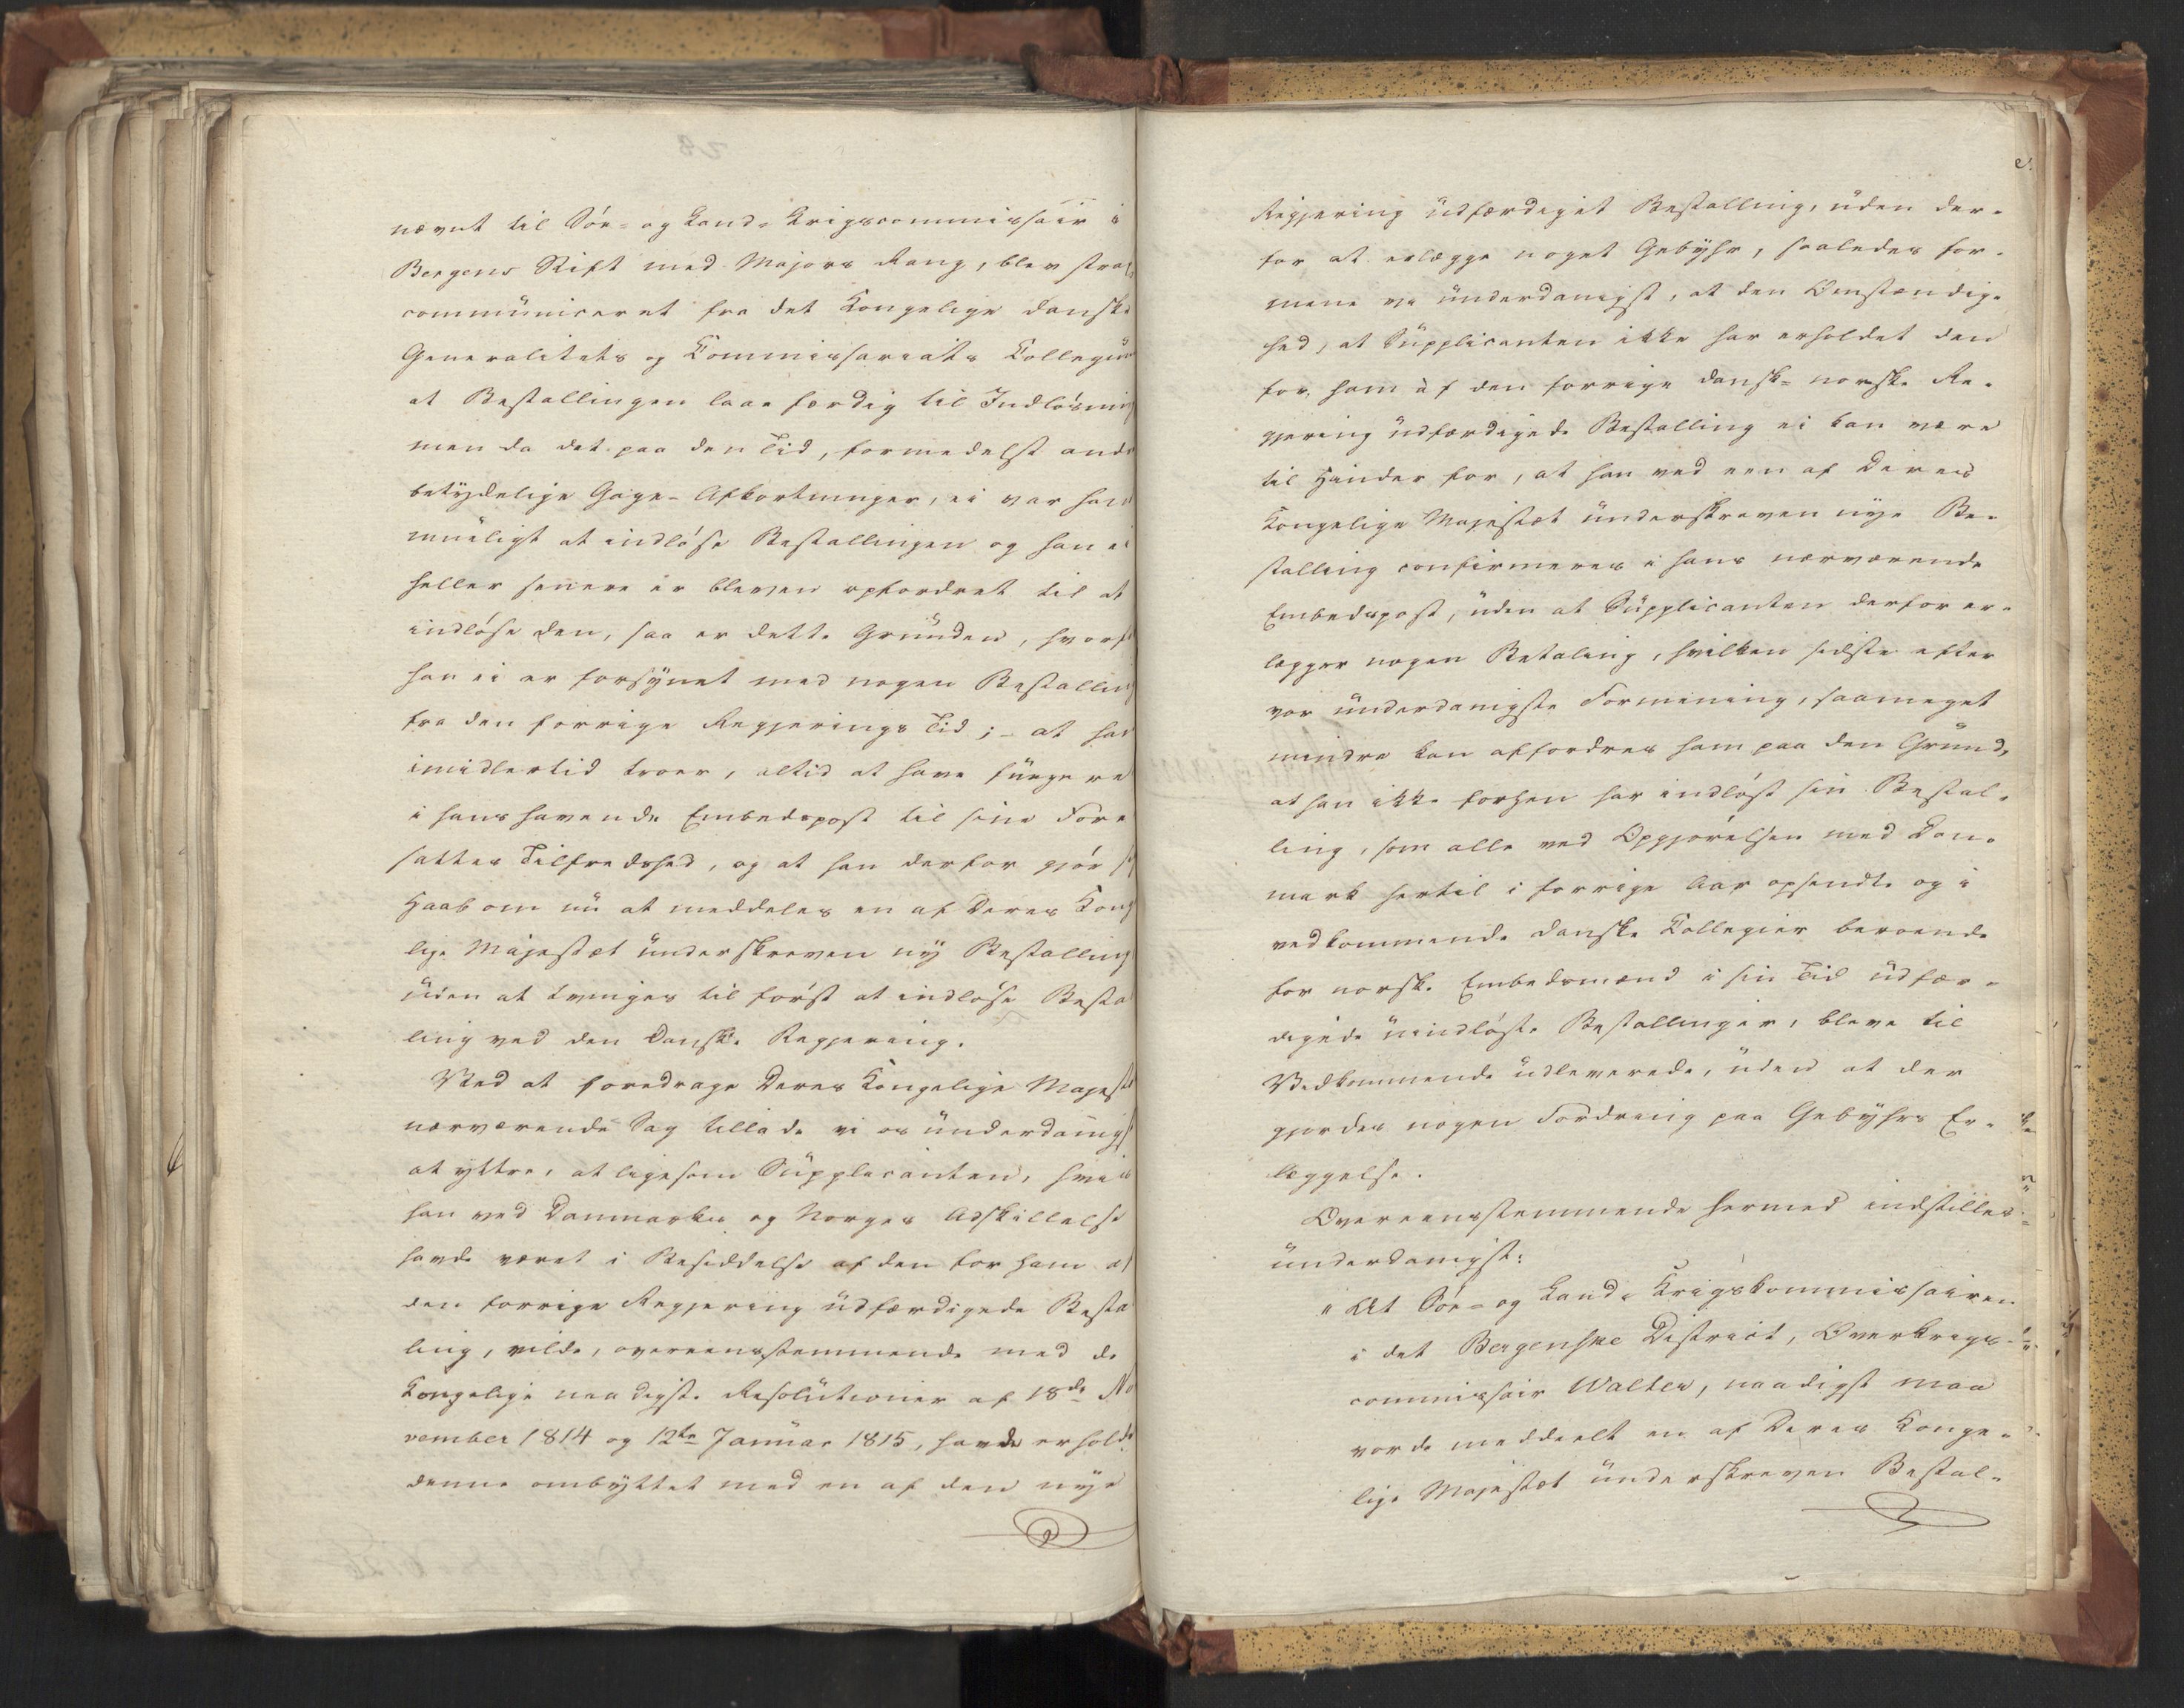 nævnt til Søe- og Land-Krigscommissair i
Bergens Stift med Majors Rang, blev strax
communiceret fra det Kongelige danske
Generalitets og Commissariats Collegium
at Bestallingen laae færdig til Indløsning
men da det paa den Tid, formedelst andre
betydelige Gage-Afkortninger, ei var ham
mueligt at indløse Bestallingen og han ei
heller senere er bleven opfordret til at
indløse den, saa er dette Grunden, hvorfor
han ei er forsynet med nogen Bestalling
fra den forrige Regjerings Tid; - at han
imidlertid troer, altid at have fungeret
i hans havende Embedspost til sine Fore
sattes Tilfredshed, og at han derfor gjør sig
Haab om nu at meddeles en af Deres Konge
lige Majestæt underskreven ny Bestalling
uden at tvinges til først at indløse Bestal
ling ved den Danske Regjering.
Ved at foredrage Deres Kongelige Majestæt
nærværende Sag tillade vi os underdanigst
at yttre, at ligesom Supplicanten, hvis
han ved Danmarks og Norges Adskillelse
havde været i Besiddelse af den for ham af
den forrige Regjering udfærdigede Bestal
ling, vilde, overeensstemmende med de
Kongelige naadigste Resolutioner af 18de No
vember 1814 og 12te Januar 1815, havde erholdt
denne ombyttet med en af den nye
Regjering udfærdiget Bestalling, uden der-
for at erlægge noget Gebyhr, saaledes for-
mene vi underdanigst, at den Omstændig-
hed, at Supplicanten ikke har erholdet den
for ham af den forrige dansk-norske Re-
gjering udfærdigede Bestalling ei kan være
til Hinder for, at han ved een af Deres
Kongelige Majestæt underskreven nye Be-
stalling confirmeres i hans nærværende
Embedspost, uden at Supplicanten derfor er-
lægger nogen Betaling, hvilken sidste efter
vor underdanigste Formening, saameget
mindre kan affordres ham paa den Grund,
at han ikke forhen har indløst sin Bestal-
ling, som alle ved Opgjørelsen med Dan-
mark hertil i forrige Aar opsendte og i
vedkommende danske Collegier beroende
for norske Embedsmænd i sin Tid udfær-
digede uindløste Bestallinger, bleve til
Vedkommende udleverede, uden at der
gjordes nogen Fordring paa Gebyhrs Er-
læggelse.
Overeensstemmende hermed indstilles
underdanigst:
"At Søe- og Land-Krigskommissairen
i det Bergenske District, Overkrigs-
commissair Walter, naadigst maa
vorde meddeelt en af Deres Konge-
lige Majestæt underskreven Bestal-